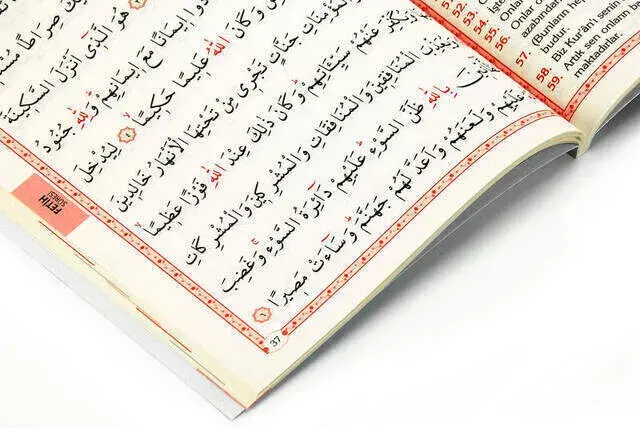 صِرَاطًا
هُوَ الَّذِى اَنْزَلَ السَّكِينَةَ
اِيمَانًا مَعَ اِيمَانِهِمْ وَلِلّٰهِ جُنُودُ
وَكَانَ اللّٰهُ عَلِيمًا حَكِيمًا ٤ لِيُدْخِلَ
جَنَّاتٍ تَجْرِى مِنْ تَحْتِهَا الْاَنْهَارُ خَالِدِينَ
عَنْهُمْ سَيِّـَٔاتِهِمْ وَكَانَ ذٰلِكَ عِنْدَ اللّٰهِ فَوْزًا عَظِيمًا
الْمُنَافِقِينَ وَالْمُنَافِقَاتِ وَالْمُشْرِكِينَ وَالْمُشْرِكَاتِ
بِاللّٰهِ ظَنَّ السَّوْءِ عَلَيْهِمْ دَٓائِرَةُ السَّوْءِ وَغَضِبَ
عَلَيْهِمْ وَلَعَنَهُمْ وَاَعَدَّ لَهُمْ جَهَنَّمَ وَسَٓاءَتْ مَصِيرًا ٦
FETİH
SÛRESİ
37
52.
53.
54.
55.
56. Onlar o
azabından
57. (Bunların hep
budur.
58. Biz Kur'ân'ı senin
59. Artık sen onların
maktadırlar.